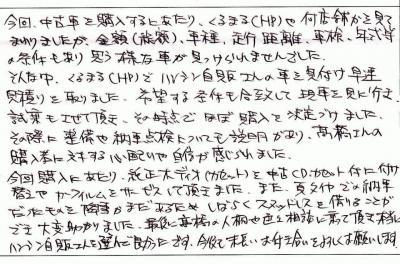 今回、中古車を購入するにあたり、くるまる(HP)や何店舗かを見て
まわりましたが、金額(総額)、車種、走行距離、車検、年式等
の条件もあり思う様な車が見つけられませんでした。
そんな中、くるまる(HP)でハシモン自販さんの車を見付け早速
見積りを取りました。希望する条件も合致して現車を見に行き、
試乗もさせて頂き、その時点でほぼ購入を決定づけました。
その際に整備や納車点検についても説明があり、高橋さんの
購入者に対する心配りや自信が感じられました。
今回購入にあたり、純正オーディオ(カセット)を中古CD、カセット付に付け
替えやカーフィルムをサービスして頂きました。また、真文中での納車
だったものを降雪がまだあるためしばらくスタッドレスを借りることが
でき大変助かりました。最後に高橋の人柄や色々相談に乗って頂き様に
ハシモン自販さんを選んで良かったです。今後も末長いお付き合いをよろしくお願いします。